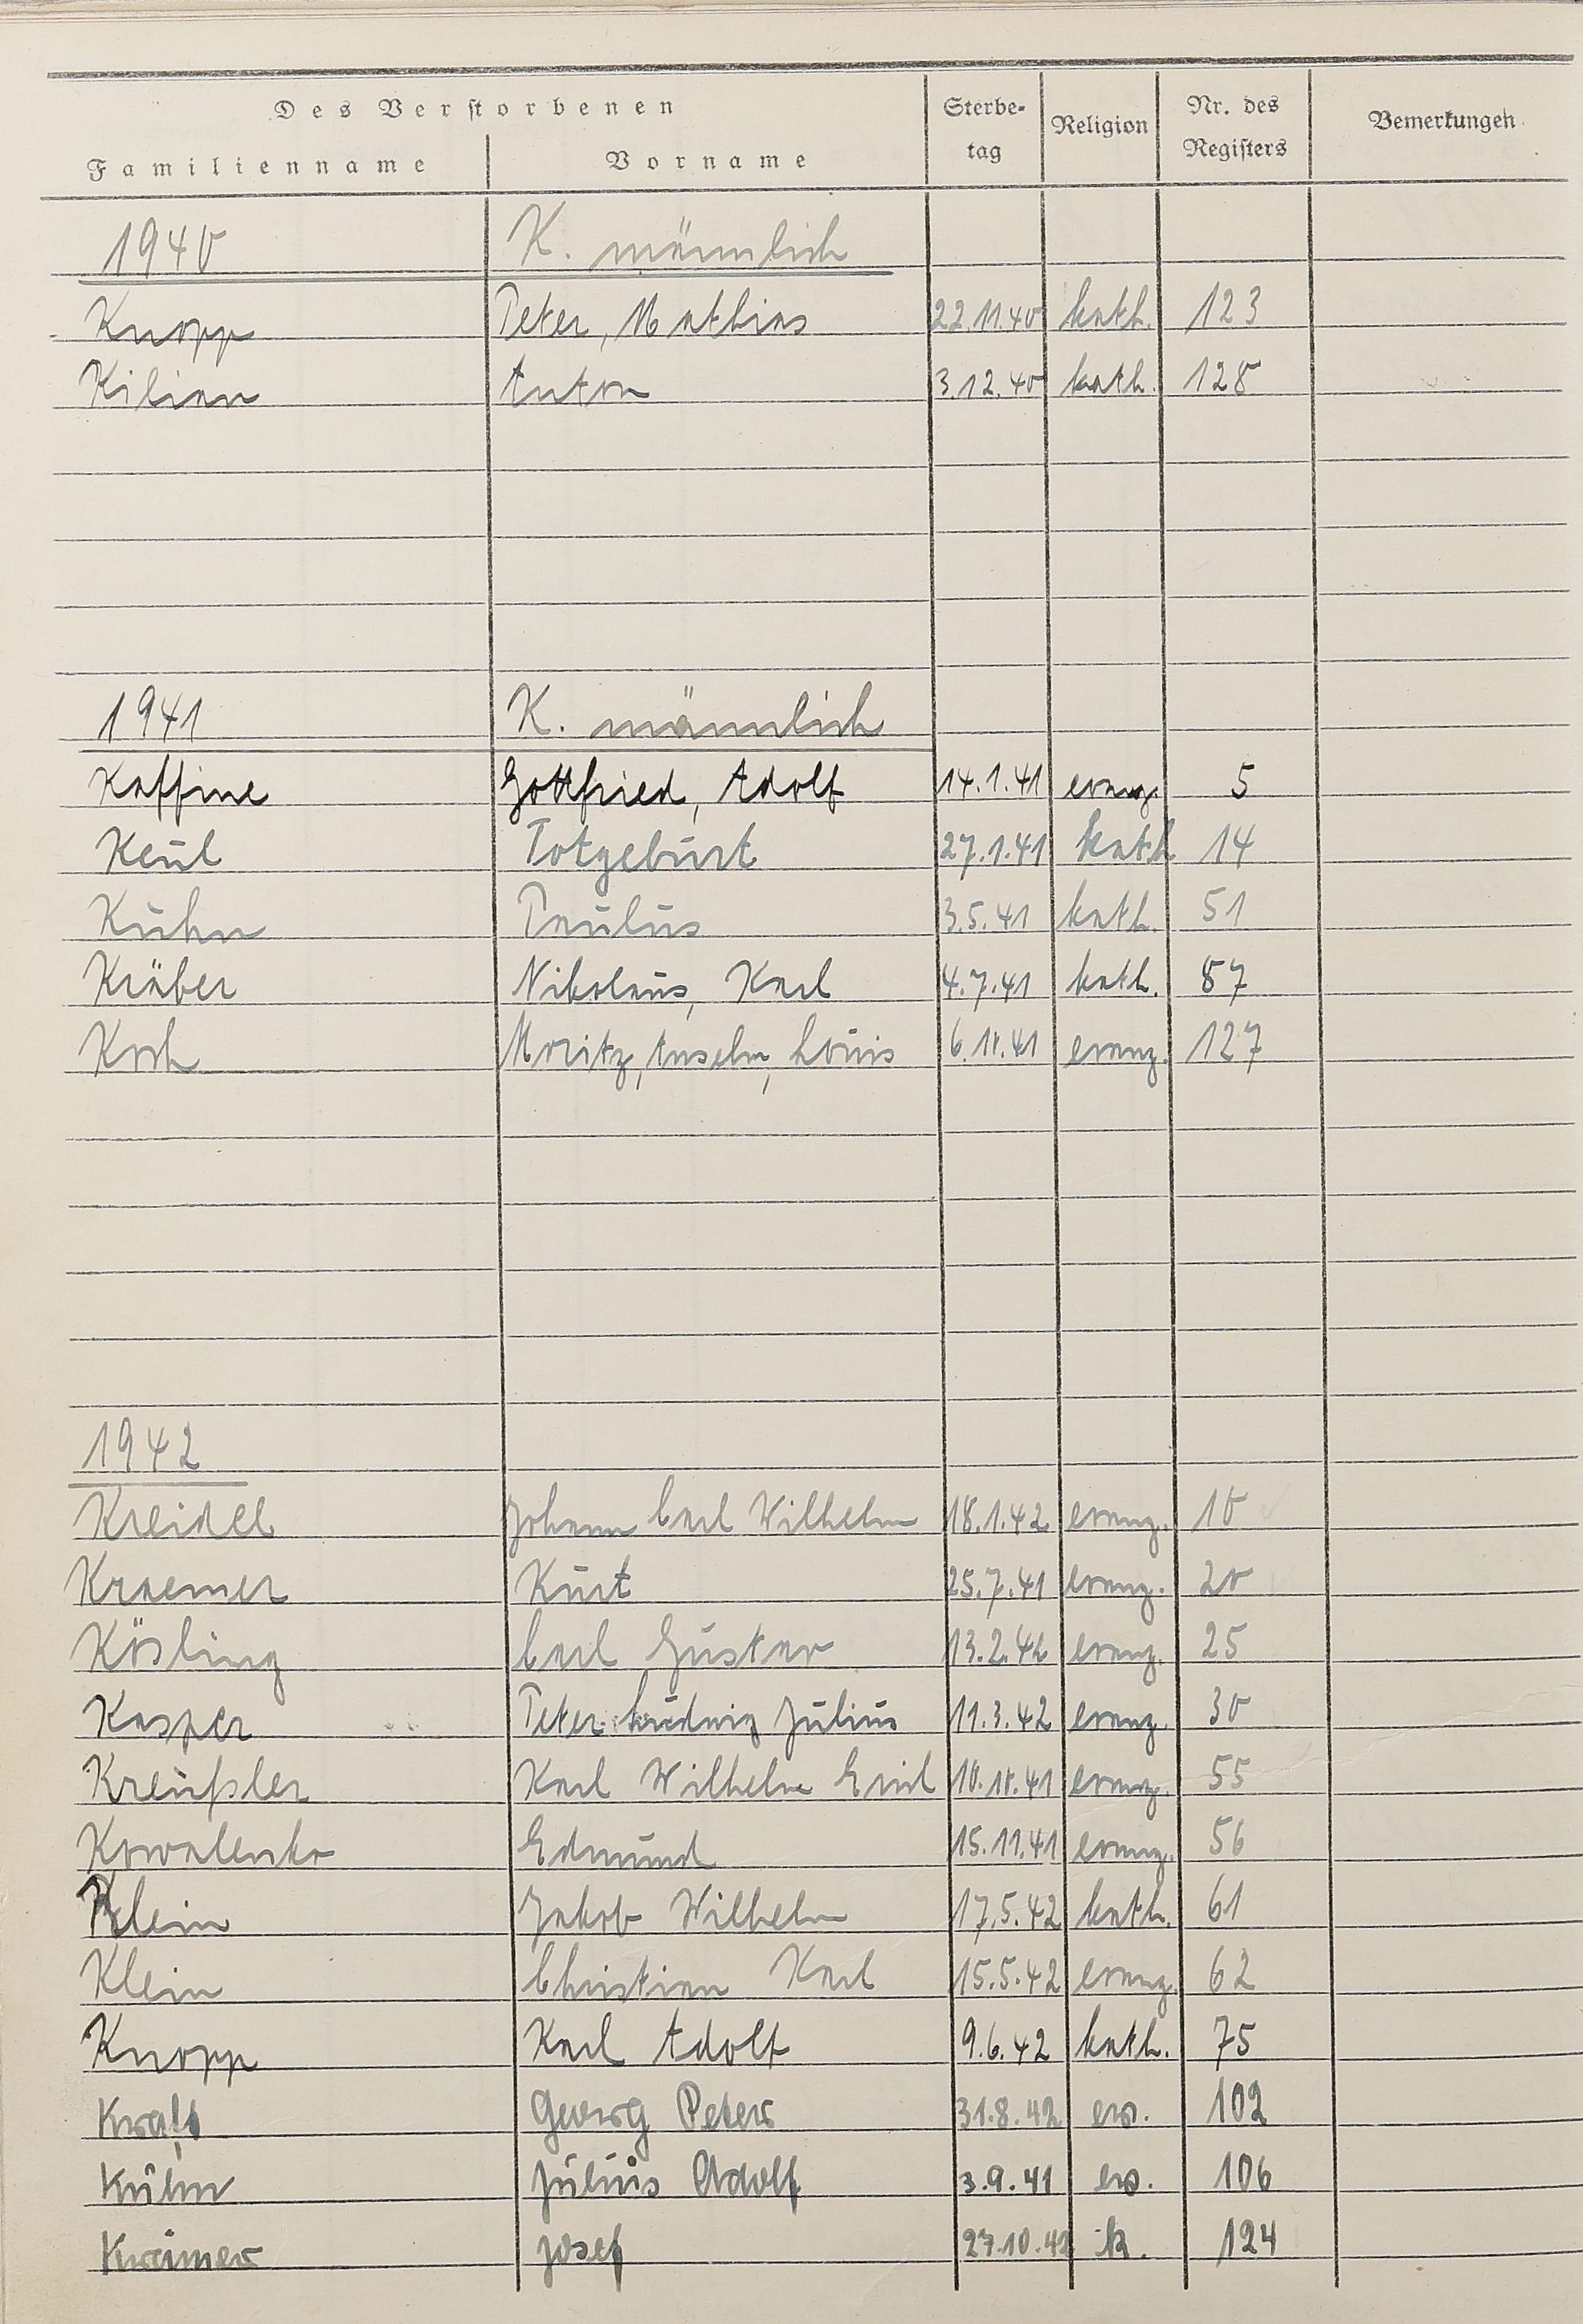 Des Verstorbenen
Familienname Vorname Sterbe-tag Religion Nr. des Registers Bemerkungen
1940 K. männlich
Knopp Peter, Mathias 22.11.40 kath. 123
Kilian Anton 3.12.40 kath. 128
1941 K. männlich
Kaffine Gottfried, Adolf 14.1.41 evang. 5
Keul Totgeburt 27.1.41 kath 14
Kuhn Paulus 3.5.41 kath. 51
Kräber Nikolaus, Karl 4.7.41 kath. 87
Koch Moritz, Anselm, Louis 6.10.41 evang. 127
1942
Kreidel Johann Carl Wilhelm 18.1.42 evang. 10
Kraemer Kurt 25.7.41 evang. 20
Kösling Carl Gustav 13.2.42 evang. 25
Kasper Peter Ludwig Julius 11.3.42 evang. 30
Kreußler Karl Wilhelm Emil 10.10.41 evang. 55
Kowalenko Edmund 15.11.41 evang. 56
Klein Jakob Wilhelm 17.5.42 kath. 61
Klein Christian Karl 15.5.42 evang. 62
Knopp Karl Adolf 9.6.42 kath. 75
Kraft Georg Peter 31.8.42 ev. 102
Kuhn Julius Adolf 3.9.41 ev. 106
Krämer Josef k. 124